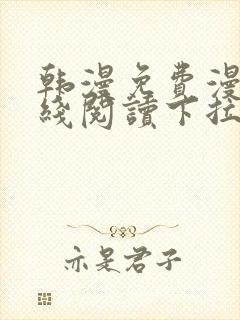 韩漫免费漫
线阅读下拉
亦是君子